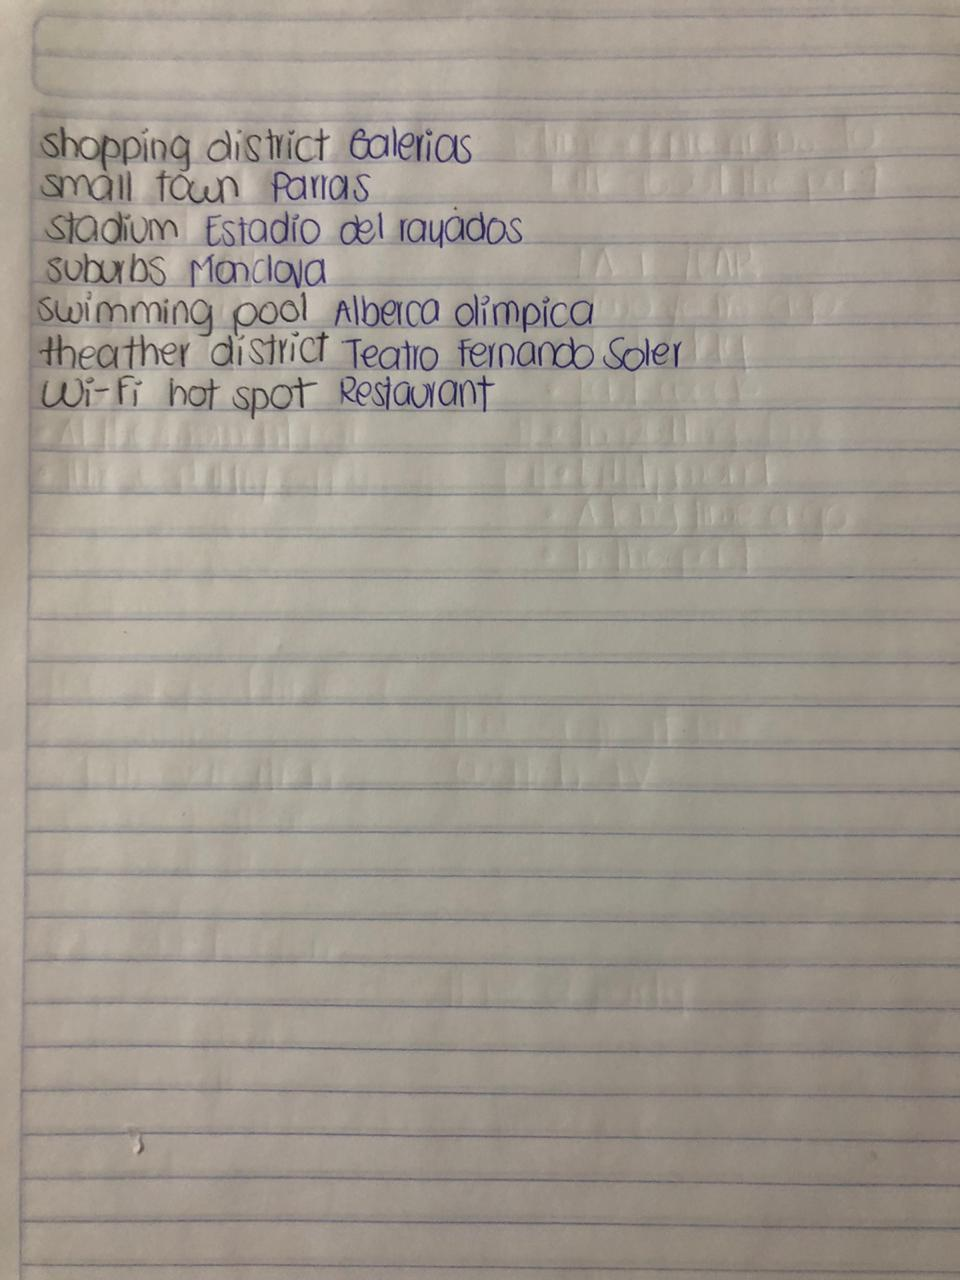 shopping district Galerias
small town Parras
stadium Estadio del rayados
suburbs Monclova
swimming pool Alberca olimpica
theather district Teatro Fernando Soler
Wi-Fi hot spot Restaurant